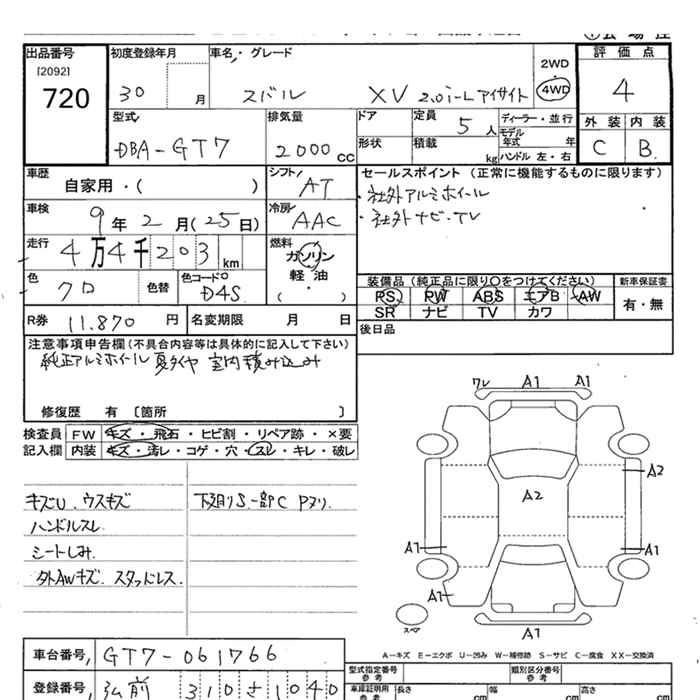 出品番号
[2092]
720
初度登録年月
30 月
車名・グレード
スバル XV 2.0i-L アイサイト
2WD
4WD
評価点
4
外装 内装
C B
型式
DBA-GT7
排気量
2000 cc
ドア
形状
定員
5 人
積載
kg
ディーラー・並行
モデル年式 年
ハンドル 左・右
車歴
自家用・( )
シフト
AT
車検
9 年 2 月 (25 日)
冷房
AAC
走行
4万4千203 km
燃料
ガソリン
軽油
( ・ )
色
クロ
色替
色コードNo
D4S
R券 11.870 円
名変期限 月 日
セールスポイント(正常に機能するものに限ります)
・社外アルミホイール
・社外ナビ・TV
装備品(純正品に限り○をつけてください)
PS PW ABS エアB AW
SR ナビ TV カワ
新車保証書
有・無
後日品
注意事項申告欄(不具合内容等は具体的に記入して下さい)
純正アルミホイール 夏タイヤ 室内積み込み
修復歴 有 〔箇所 〕
検査員 FW キズ・飛石・ヒビ割・リペア跡・×要
記入欄 内装 キズ・汚レ・コゲ・穴・スレ・キレ・破レ
キズU.ウスキズ
ハンドルスレ
シートしみ.
外AWキズ.スタッドレス.
下廻りS.一部C Pヌリ.
ワレ A1 A1
A2
A2
A1 A1
A1
スペア
A1
A-キズ E-エクボ U-凹み W-補修跡 S-サビ C-腐食 XX-交換済
車台番号 GT7-061766
型式指定番号
参考
類別区分番号
参考
登録番号 弘前 310 さ 1040
車庫証明用
参考
長さ cm 幅 cm 高さ cm